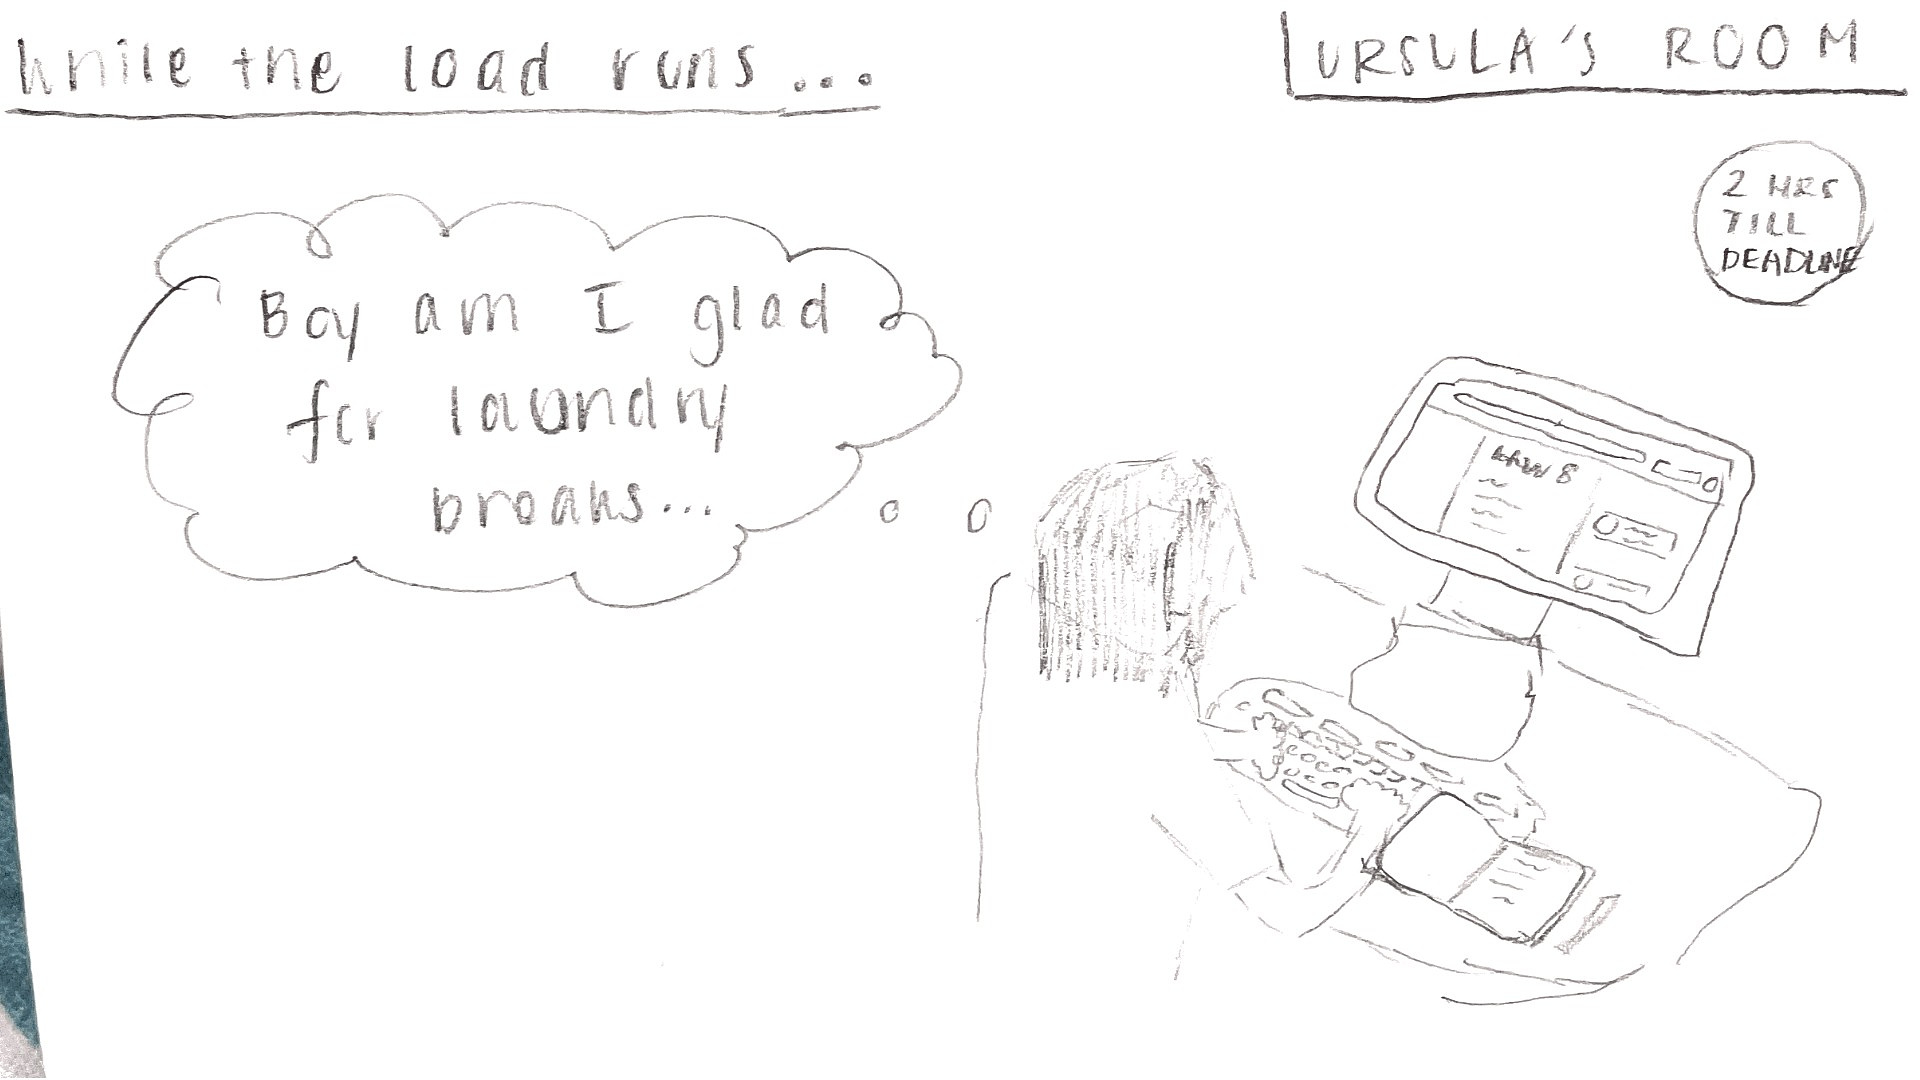 While the load runs...
URSULA'S ROOM
2 HRS
TILL
DEADLINE
Boy am I glad
for laundry
breaks...